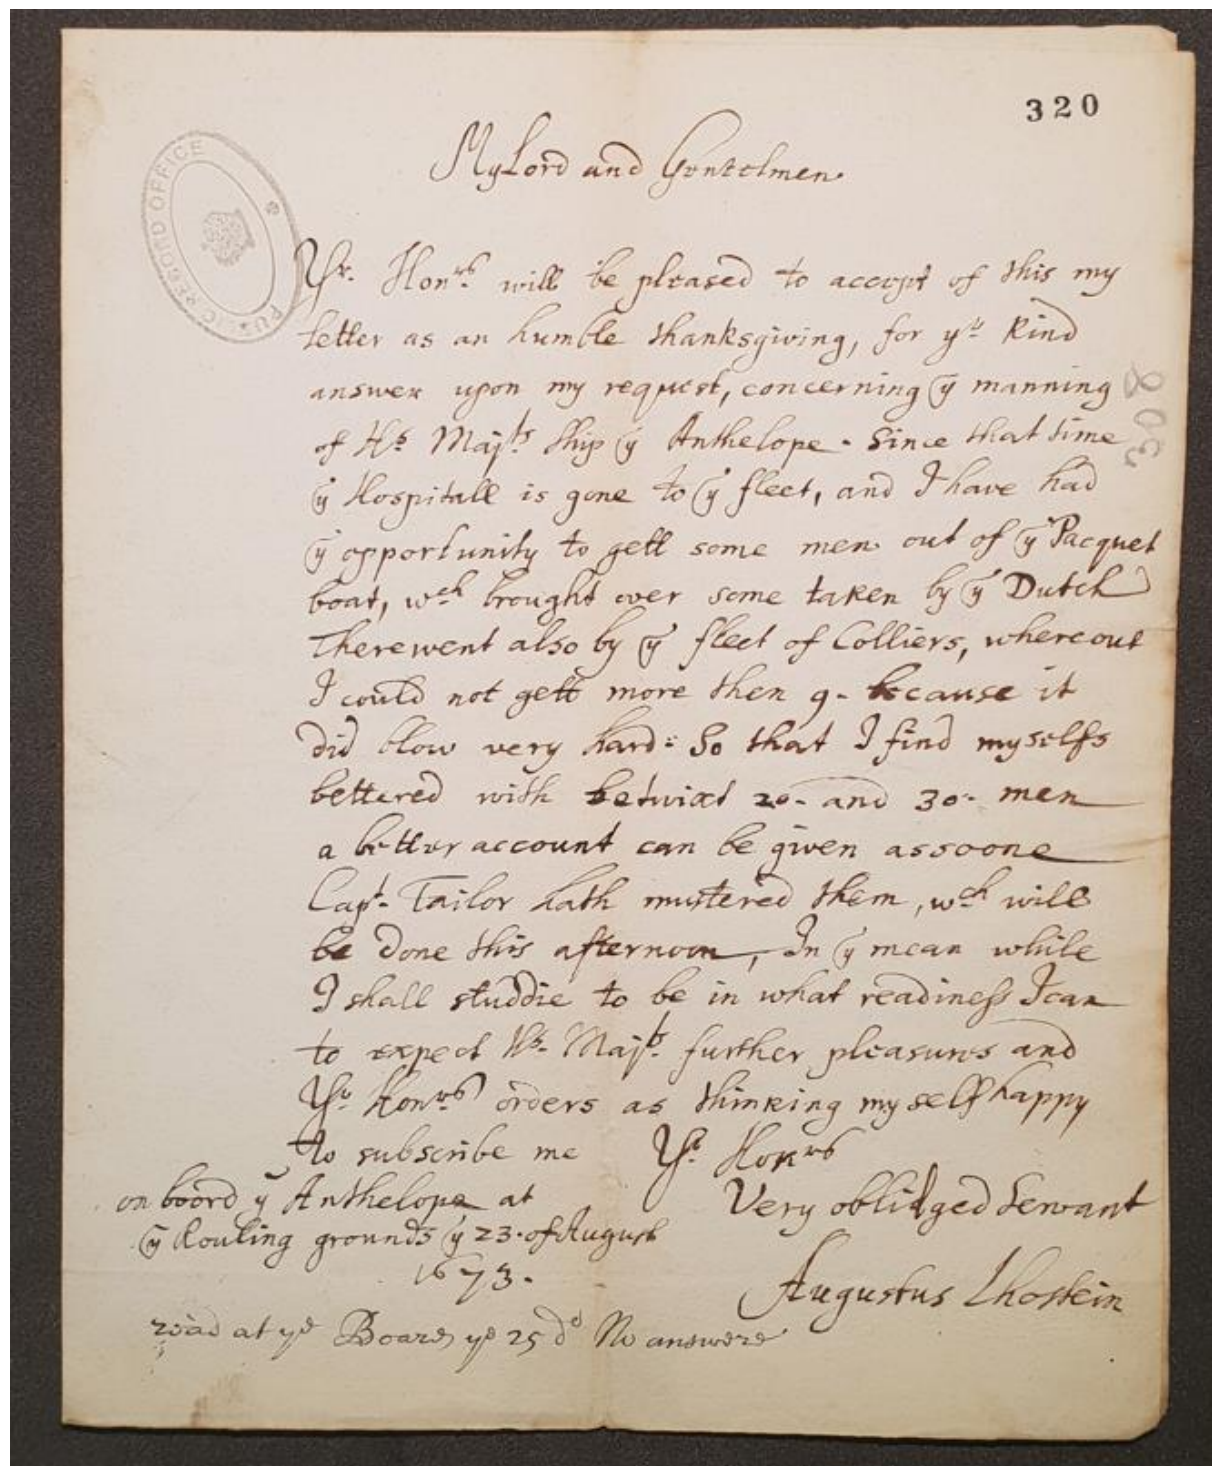 320
PUBLIC RECORD OFFICE
My Lord and Gentelmen
Yr. Honrs will be pleased to accept of this my
letter as an humble thanksgiving, for yr kind
answer upon my request, concerning ÿ manning
of Hs Majts ship ÿ Anthelope. Since that time
ÿ Hospitall is gone to ÿ fleet, and I have had
ÿ opportunity to gett some men out of ÿ Pacquet
boat, wch brought over some taken by ÿ Dutch
There went also by ÿ fleet of Colliers, whereout
I could not gett more then 9. because it
did blow very hard: So that I find myselfs
bettered with betwixt 20. and 30. men
a better account can be given assoone
Capt. Tailor hath mustered them, wch will
be done this afternoon, In ÿ mean while
I shall studdie to be in what readiness I can
to expect Hs. Majts. further pleasures and
Yr Honrs orders as thinking my self happy
to subscribe me Yr. Honrs
on boord ÿ Anthelope at
Very oblidged Servant
ÿ Rouling grounds ÿ 23. of August
1673.
Augustus Lhostein
read at ye Board ye 25 dº No answere
308